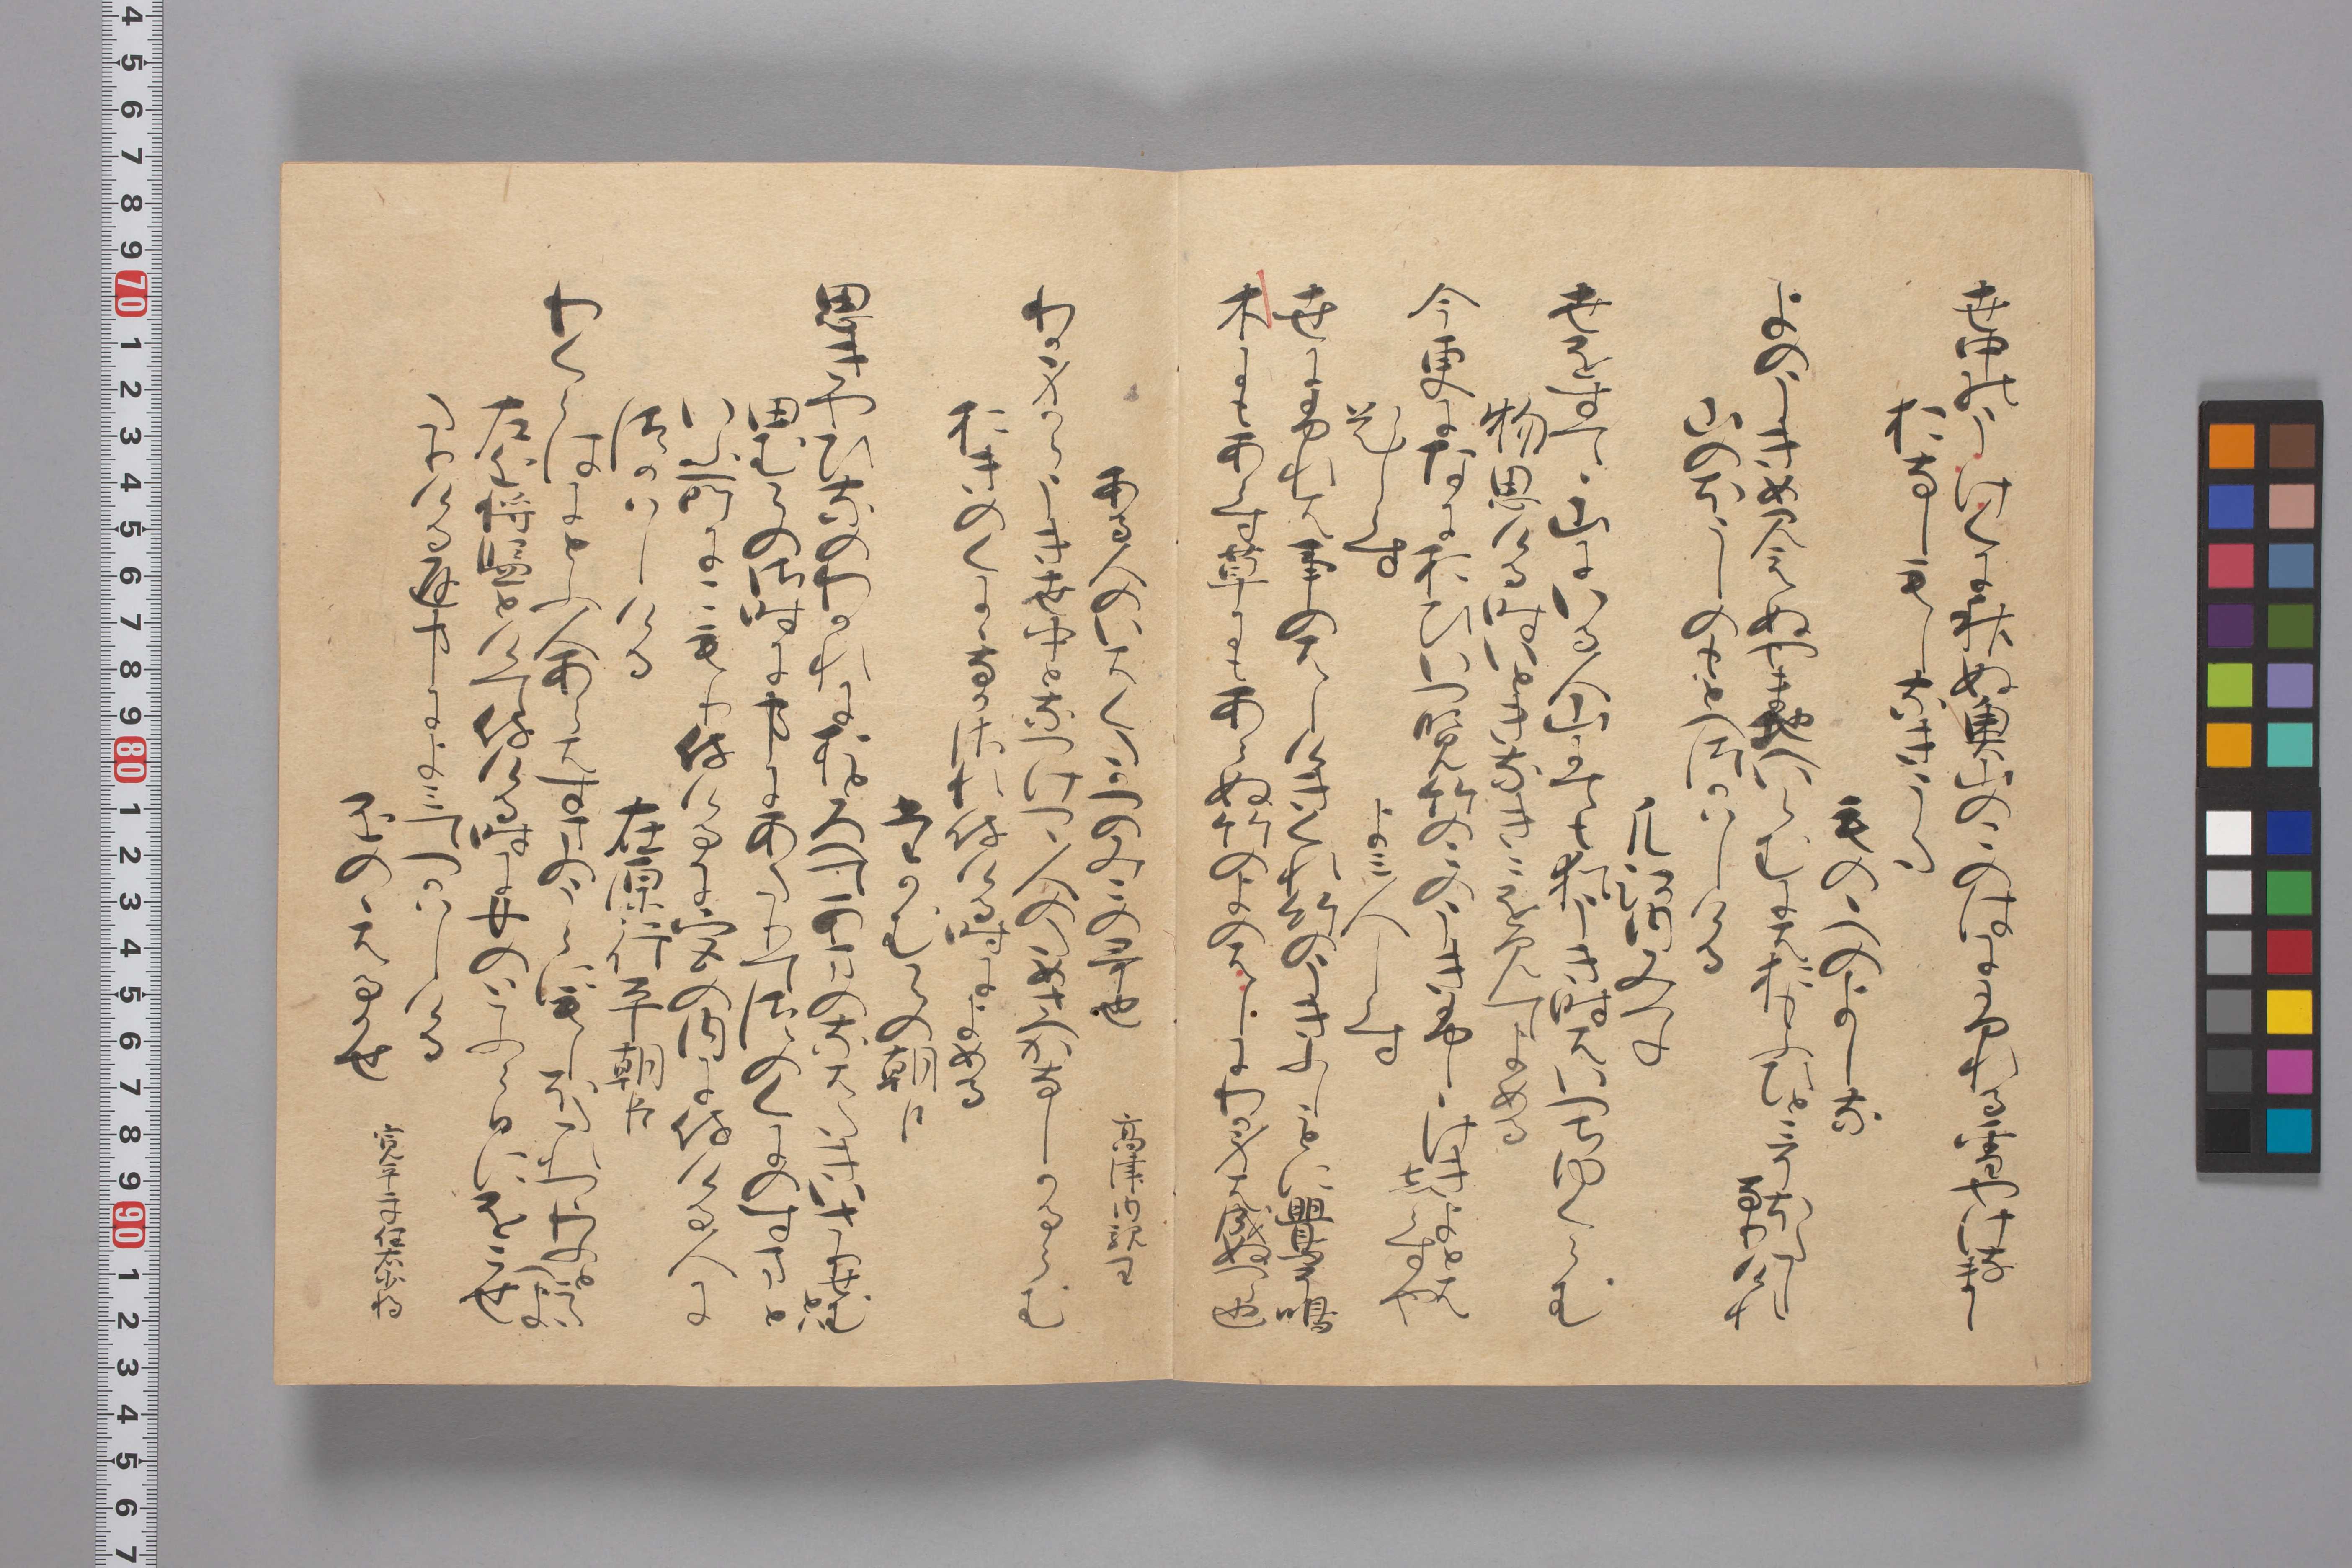 世中のうけくにあきぬ奥山のこのはにふれる雪やけなまし
おなしもしなきうた
もののへのよしな
よのうきめ見えぬ山ちへいらむにはおもふ人こそほたしなりけれ
山のほうしのもとへつかはしける
凡河内みつね
世をすてて山にいる人山にても猶うき時はいつちゆくらむ
物思ひける時いときなきこを見てよめる
今更になにおひいつらむ竹のこのうきふししけき世とはしらすや
題しらす よみ人しらす
世にふれは事のはしけきくれ竹のうきふしことに鶯そ鳴
木にもあらす草にもあらぬ竹のよのはしにわか身はなりぬへら也
ある人のいはくたかつのみこの哥也
わか身からうき世中となけきつつ人のためさへかなしかるらむ
おきのくににながされて侍ける時によめる
たかむらの朝臣
思きやひなのわかれにおとろへてあまのなはたきいさりせむとは
田むらの御時に事にあたりてつのくにのすまと
いふ所にこもり侍けるに宮のうちに侍ける人に
つかはしける
在原行平朝臣
わくらはにとふ人あらはすまのうらにもしほたれつつわふとこたへよ
左近将監とけて侍ける時に女のとふらひにおこせ
たりける返事によみてつかはし
ける
をののはるかせ